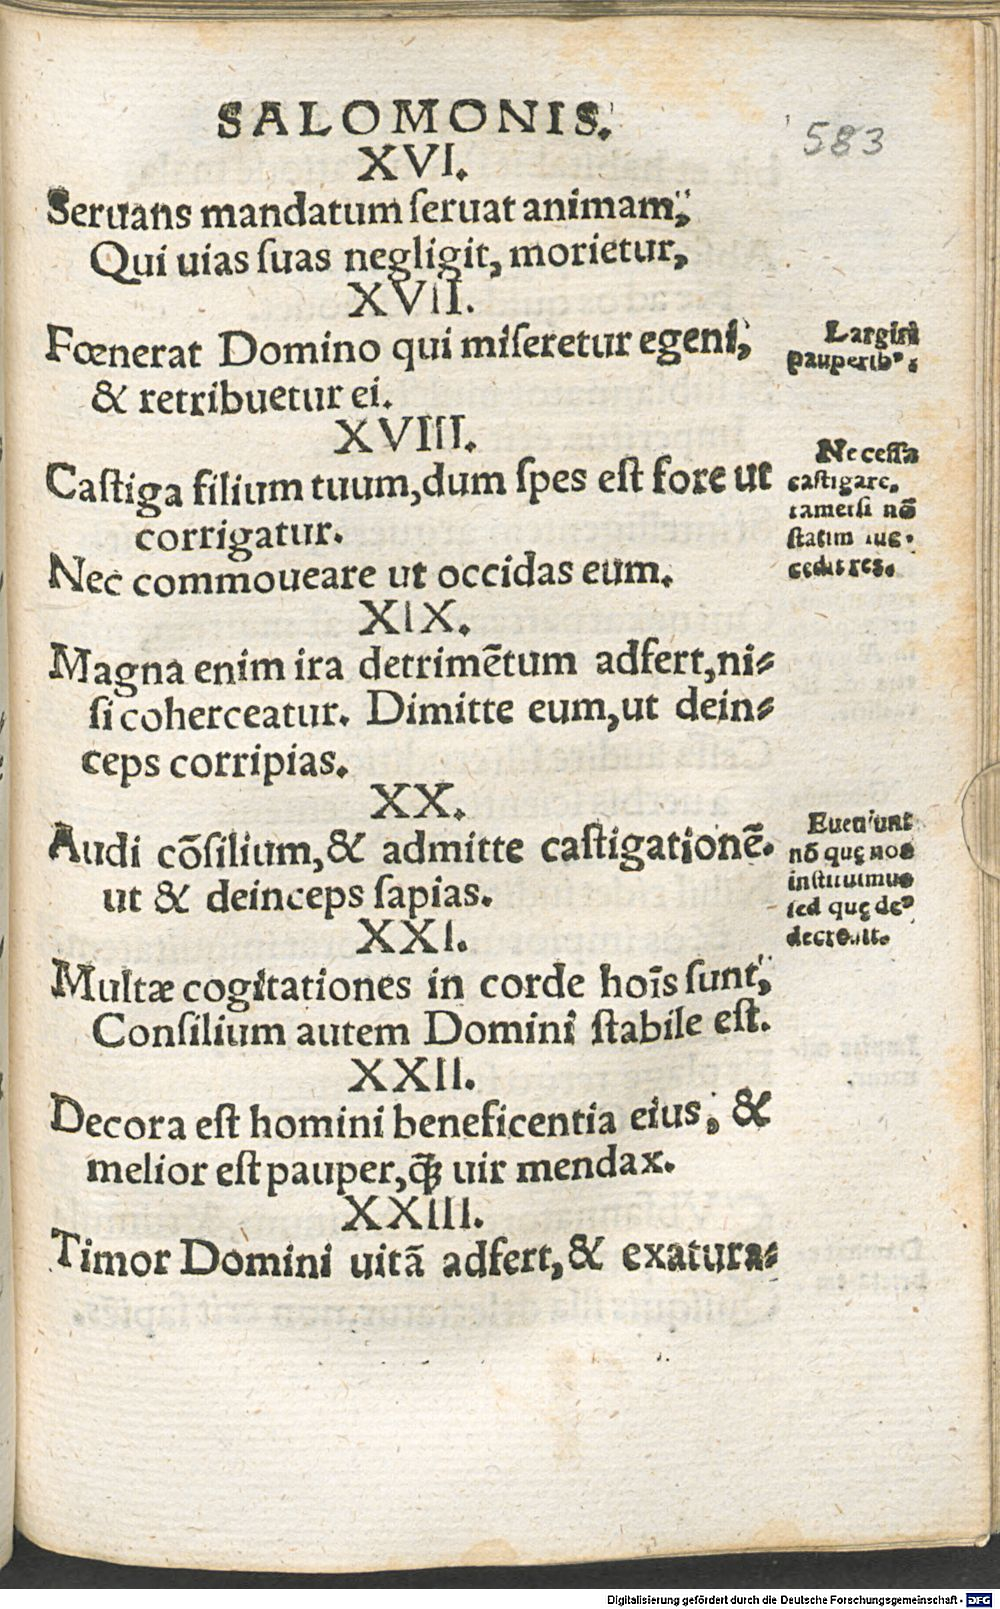 SALOMONIS.
583
XVI.
Seruans mandatum ſeruat animam,
Qui uias ſuas negligit, morietur,
XVII.
Fœnerat Domino qui miſeretur egeni,
& retribuetur ei.
Largiri
pauperibꝰ.
XVIII.
Caſtiga filium tuum, dum ſpes eſt fore ut
corrigatur.
Nec commoueare ut occidas eum.
Neceſſa
caſtigare,
tametſi nō
ſtatim ſuc⸗
cedit res.
XIX.
Magna enim ira detrimētum adfert, ni⸗
ſi coherceatur. Dimitte eum, ut dein⸗
ceps corripias.
XX.
Audi cōſilium, & admitte caſtigationē.
ut & deinceps ſapias.
Eueniunt
nō quę nos
inſtituimus
ſed quę deꝰ
XXI.
Multæ cogitationes in corde hoīs ſunt,
Conſilium autem Domini ſtabile eſt.
XXII.
Decora eſt homini beneficentia eius, &
melior eſt pauper, ꝗ̃ꝫ uir mendax.
XXIII.
Timor Domini uitā adfert, & exatura⸗
Digitalisierung gefördert durch die Deutsche Forschungsgemeinschaft - DFG